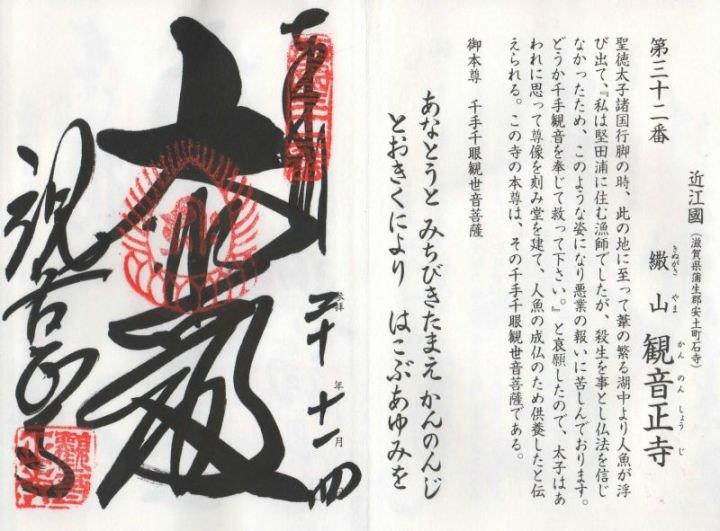 近江國(滋賀県蒲生郡安土町石寺)
繖山 観音正寺
きぬがさ やま かんのんしょうじ
第三十二番
聖徳太子諸国行脚の時、此の地に至って葦の繁る湖中より人魚が浮
び出て、『私は堅田浦に住む漁師でしたが、殺生を事とし仏法を信じ
なかったため、このような姿になり悪業の報いに苦しんでおります。
どうか千手観音を奉じて救って下さい。』と哀願したので、太子はあ
われに思って尊像を刻み堂を建て、人魚の成仏のため供養したと伝
えられる。この寺の本尊は、その千手千眼観世音菩薩である。
御本尊 千手千眼観世音菩薩
あなとうと みちびきたまえ かんのんじ
とおきくにより はこぶあゆみを
奉拝
二十年十一月四
大悲殿
観音正寺